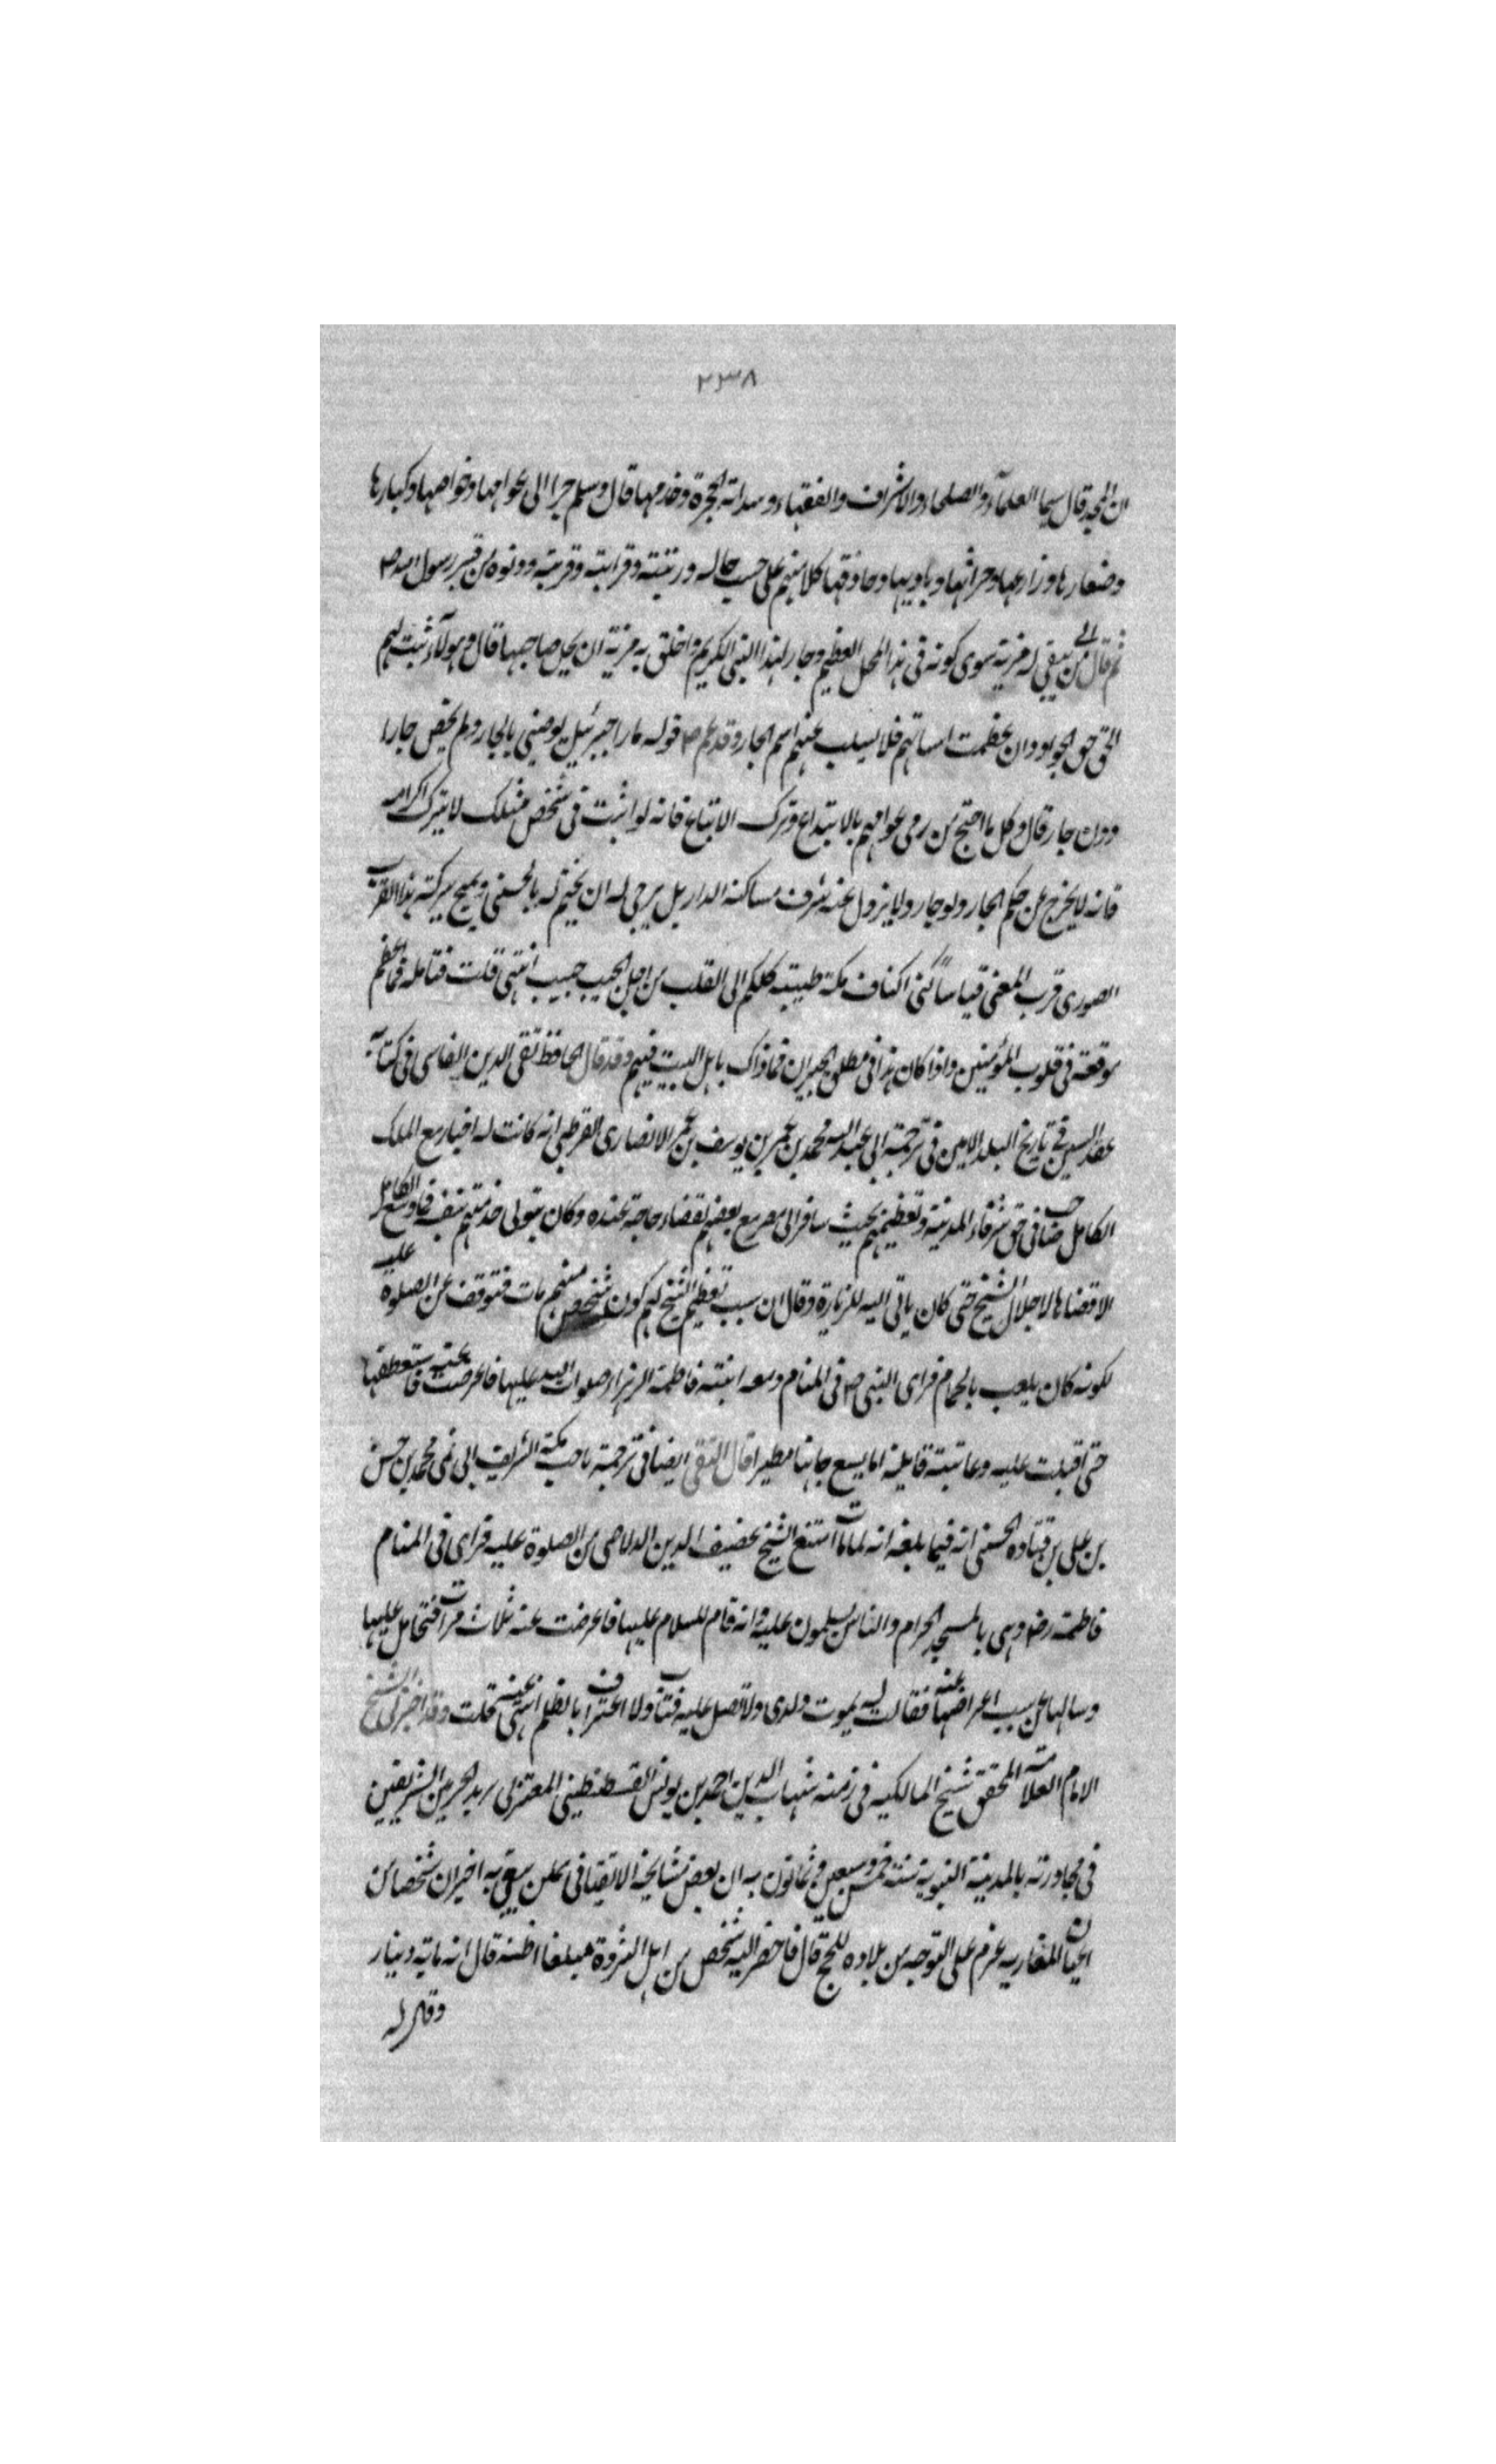 ٢٣٨
ان المجد قال سيما العلماء والصلحاء والاشراف والفقهاء وسدانة الحجرة وخدمها قال وهلم جرا الى عوامها وخواصها وكبارها
وصغارها وزارعها وحراثها وباديها وحاذقها كلا منهم على حسب حاله ورتبته وقرابته وقربته ودنوه من قبر رسول الله ص
ثم قال الى من يبقى له مزية سوى كونه فى هذا المحل العظيم وجار لهذا النبى الكريم واخلق به مزية ان يجل صاحبها قال وهولاء ثبت لهم
الحق حق الجوار وان عظمت اساتهم فلا يسلب عنهم اسم الجار وقد عم ص قوله ما زال جبرئيل يوصينى بالجار ولم يخص جارا
دون جار قال وكل ما احتج من رمى عوامهم بالابتداع وترك الاتباع فانه لو اثبت فى شخص مثلك لا يترك اكرامه
فانه لا يخرج عن حكم الجار ولو جار ولا يزول عنه شرف مساكنة الدار بل يرجى له ان يختم له بالحسنى ويمنح ببركته هذا القرب
الصورى قرب المعنى فيا ساكنى اكناف مكة طيبة كلكم الى القلب من اجل الحبيب حبيب انتهى قلت فتامله فما اعظم
موقعه فى قلوب المؤمنين واذا كان هذا فى مطلق الجيران فما ذاك باهل البيت فيهم وقد قال الحافظ تقى الدين الفاسى فى كتابه
عقد الثمين فى تاريخ البلد الامين فى ترجمة ابى عبد الله محمد بن عمر بن يوسف بن عمر الانصارى القرطبى انه كانت له اخبار مع الملك
الكامل صاحب فى حق شرفاء المدينة وتعظيمهم بحيث سافر الى مصر مع بعضهم لقضاء حاجة عنده وكان يتولى خدمتهم بنفسه فما وسع الكامل
الا قضاها لاجلال الشيخ حتى كان ياتى اليه للزيارة وقال ان سبب تعظيم الشيخ لهم كون شخص منهم مات فتوقف عن الصلوة عليه
لكونه كان يلعب بالحمام فراى النبى ص فى المنام ومعه ابنته فاطمة الزهراء صلوات الله عليها فاعرضت عنه فاستعطفها
حتى اقبلت عليه وعاتبته قايلة اما يسع جاهنا مطيرا قال التقى ايضا فى ترجمة صاحب مكة الشريف ابى نمى محمد بن حسن
بن على بن قتاده الحسنى انه فيما بلغه انه لما مات امتنع الشيخ عفيف الدين الدلاصى من الصلوة عليه فراى فى المنام
فاطمة رضه وهى بالمسجد الحرام والناس يسلمون عليها وانه قام للسلام عليها فاعرضت عنه ثلاث مرات فتحامل عليها
وسالها عن سبب اعراضها عنه فقالت له يموت ولدى ولا تصل عليه فتاب ولا اعترف بالظلم انتهى قلت وقد اخبرنى الشيخ
الامام العلامة المحقق شيخ المالكيه فى زمنه شهاب الدين احمد بن يونس القسطنطينى المغربى نزيل الحرمين الشريفين
فى مجاورته بالمدينة النبوية سنة خمس وسبعين وثمانون به ان بعض مشايخه الاتقيا فى عمن يثق به اخبر ان شخصا من
اعيان المغاربه عزم على التوجه من بلاده للحج قال فاحضر اليه شخص من اهل الثروة مبلغا اظنه قال انه ماية دينار
وقال له